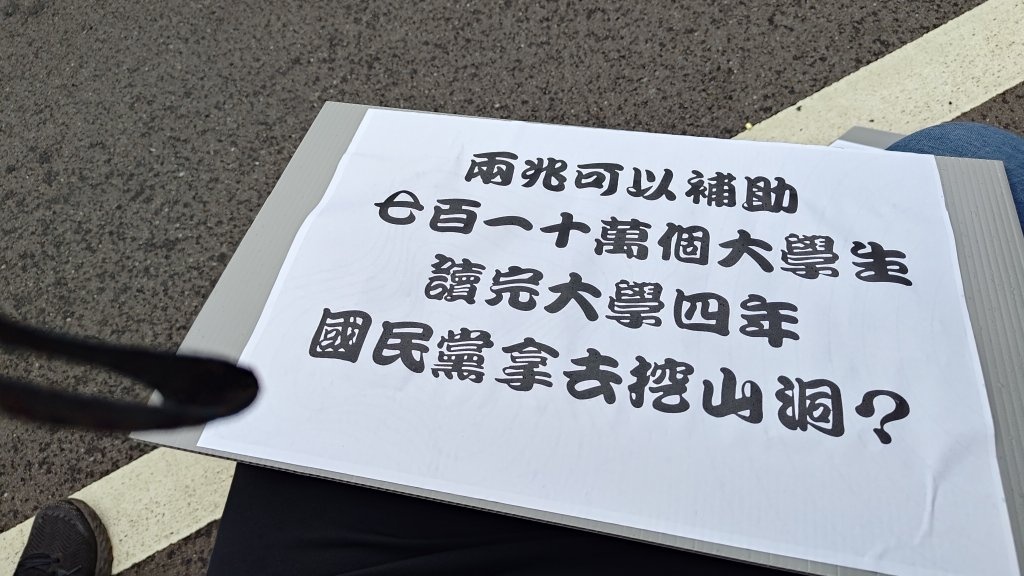 兩兆可以補助
七百一十萬個大學生
讀完大學四年
國民黨拿去挖山洞？